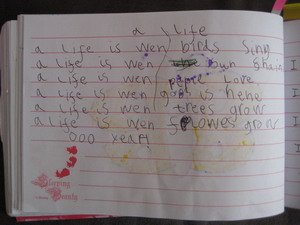 a life
a life is wen birds sing
a life is wen the sun shain
a life is wen peple love
a life is wen god is hehe
a life is wen trees grow
a life is wen flowes grow
ooo yeah
Sleeping
Beauty
I
I